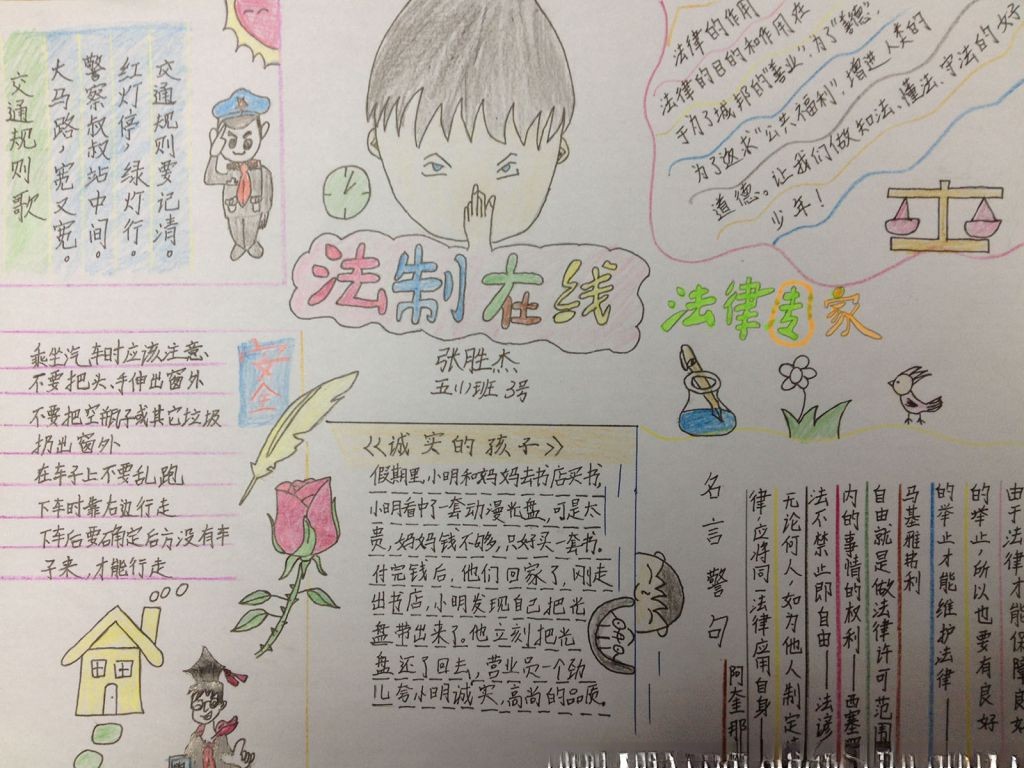 交通规则歌
大马路，宽又宽。
警察叔叔站中间。
红灯停，绿灯行。
交通规则要记清。
法律的作用
法律的目的和作用在
于为了城邦的“善业”，为了“美德”，
为了追求“公共福利”，增进人类的
道德。让我们做知法、懂法、守法的好
少年！
法制在线
法律专家
张胜杰
五(1)班 3号
安全
乘坐汽车时应该注意、
不要把头、手伸出窗外
不要把空瓶子或其它垃圾
扔出窗外
在车子上不要乱跑
下车时靠右边行走
下车后要确定后方没有车
子来，才能行走
《诚实的孩子》
假期里，小明和妈妈去书店买书，
小明看中了一套动漫光盘，可是太
贵，妈妈钱不够，只好买一套书。
付完钱后，他们回家了，刚走
出书店，小明发现自己把光
盘带出来了。他立刻把光
盘还了回去，营业员一个劲
儿夸小明诚实，高尚的品质。
名言警句
由于法律才能保障良好
的举止，所以也要有良好
的举止才能维护法律——
马基雅弗利
自由就是做法律许可范围
内的事情的权利——西塞罗
法不禁止即自由——法谚
无论何人，如为他人制定
律，应将同一法律应用自身——
阿奎那